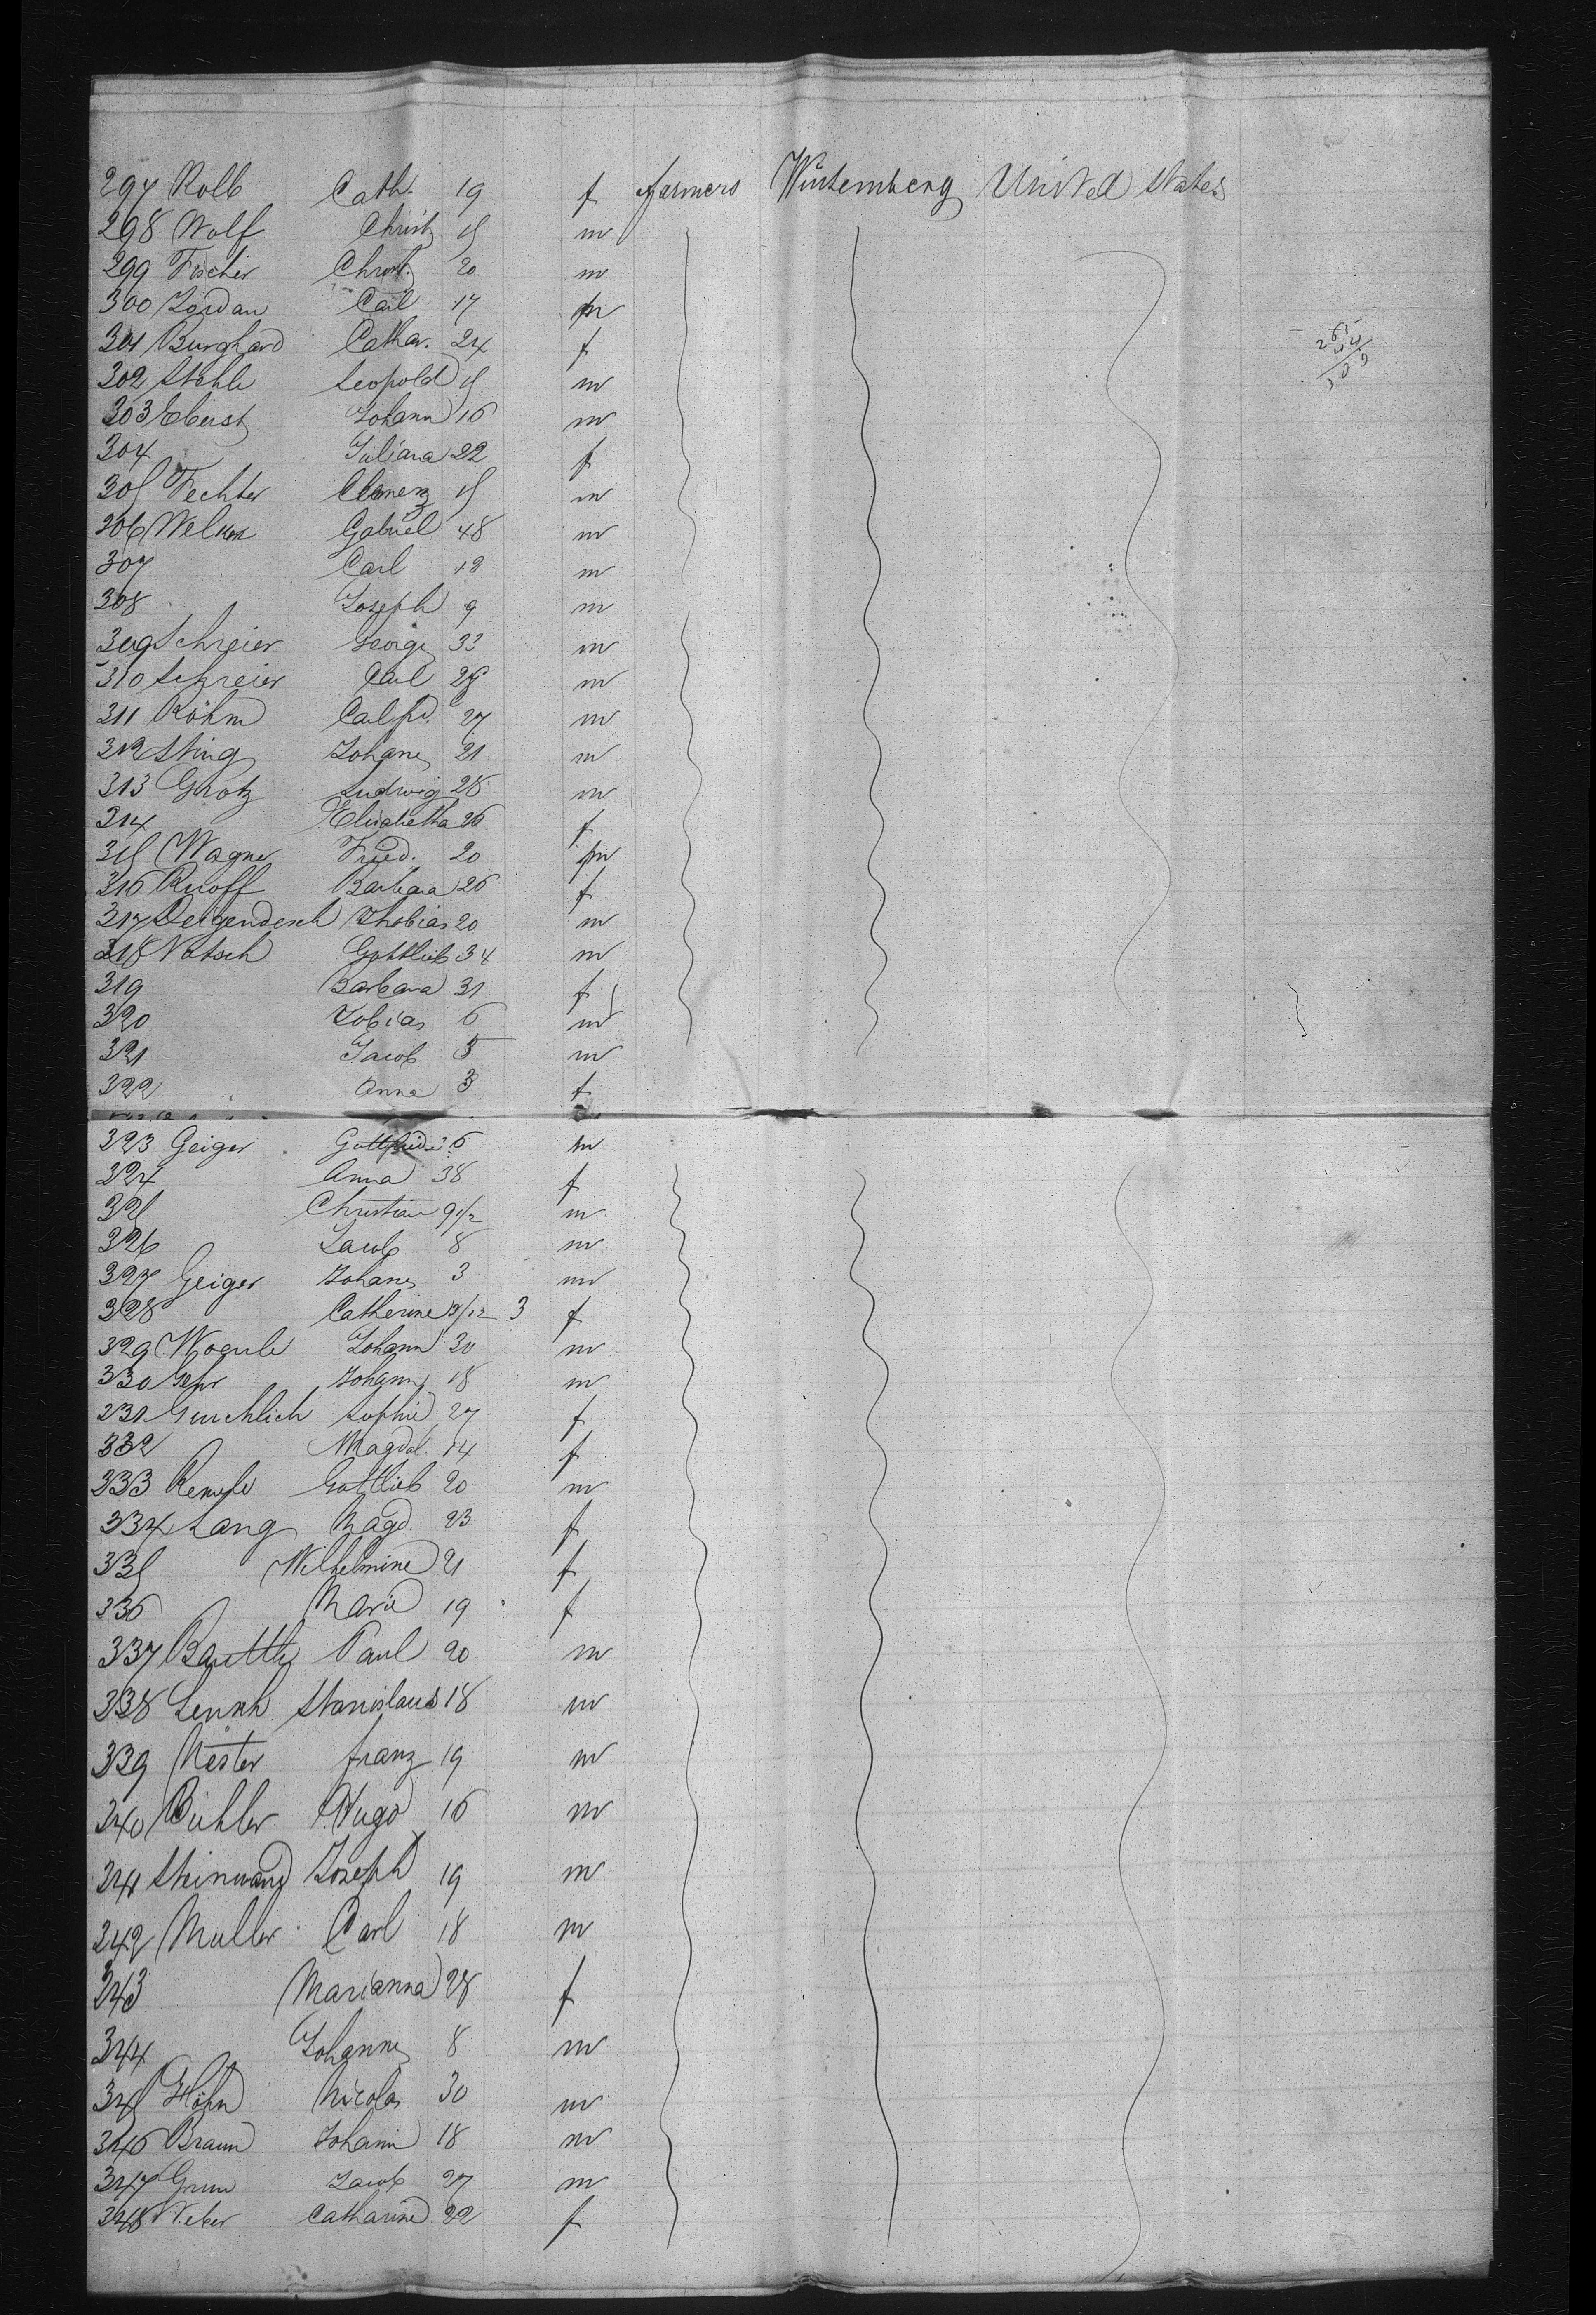 297 Kolb Cath. 19 f farmers Würtemberg United States
298 Wolf Christ 15 m
299 Fischer Christ. 20 m
300 Jordan Carl 17 m
301 Burghard Cathar. 24 f
302 Stehle Leopold 15 m
303 Eberst Johann 16 m
304 Juliana 22 f
305 Fechter Clemenz 15 m
306 Welker Gabriel 48 m
307 Carl 18 m
308 Joseph 9 m
309 Schreier George 33 m
310 Schreier Carl 28 m
311 Röhm Carl fr. 27 m
312 Sting Johanes 21 m
313 Grotz Ludwig 28 m
314 Elisabetha 26 f
315 Wagner Fried. 20 m
316 Ruoff Barbara 26 f
317 Deigendesch Thobias 20 m
318 Votsch Gottlieb 34 m
319 Barbara 31 f
320 Tobias 6 m
321 Jacob 5 m
322 Anna 3 f
323 Geiger Gottfried 36 m
324 Anna 38 f
325 Christian 9 1/2 m
326 Jacob 8 m
327 Geiger Johanes 3 m
328 Catherine 3/12 3 f
329 Johann 30 m
330 Gehr Johann 18 m
331 Sophie 27 f
332 Magdal. 14 f
333 Kemple Gottlieb 20 m
334 Lang Magd. 23 f
335 Wilhelmine 21 f
336 Marie 19 f
337 Bauttle Paul 20 m
338 Lenkh Stanislaus 18 m
339 Nester franz 19 m
340 Bühler Hugo 16 m
341 Steinwand Joseph 19 m
342 Muller Carl 18 m
343 Marianna 28 f
344 Johannes 8 m
345 Höhn Nicolas 30 m
346 Braun Johann 18 m
347 Grun Jacob 27 m
348 Weber Catharine 22 f